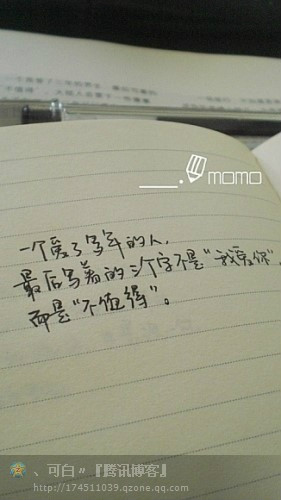 momo
一个爱了多年的人,
最后写着的三个字不是“我爱你”,
而是“不值得”。
、可白〃『腾讯博客』
http://174511039.qzone.qq.com